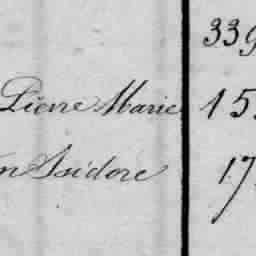 339
Pierre Marie 15
n Isidore 17